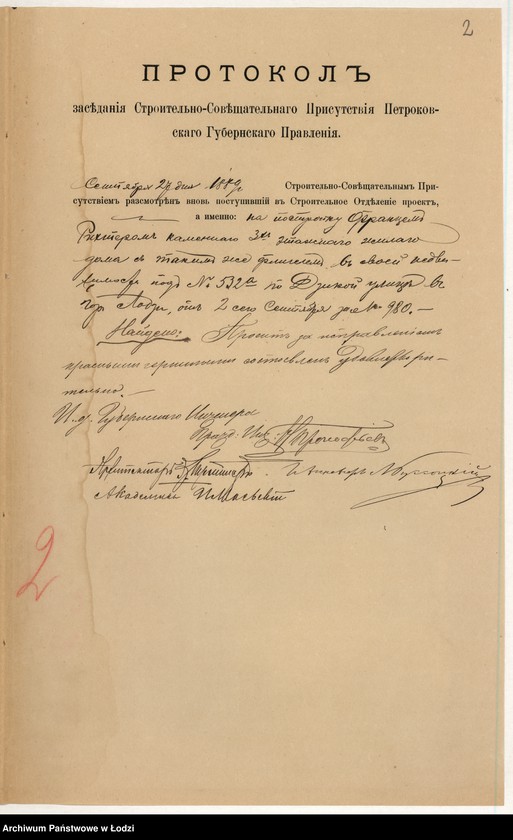 2
ПРОТОКОЛЪ
засѣданія Строительно-Совѣщательнаго Присутствія Петроков-
скаго Губернскаго Правленія.
Сентября 27 дня 1889 г. Строительно-Совѣщательнымъ При-
сутствіемъ разсмотрѣнъ вновь поступившій въ Строительное Отдѣленіе проектъ,
а именно: на постройку Францемъ
Рихтеромъ каменнаго 3хъ этажнаго жилаго
дома съ таким же флигелемъ въ своей недви-
жимости подъ № 532 по Дзикой улицѣ въ
гор. Лодзи, отъ 2 сего Сентября за № 980. —
Найдено: Проектъ за исправленіемъ
красными чернилами составленъ удовлетвори-
тельно. —
И. д. Губернскаго Инженера
Гражд. Инж.
Архитекторъ Инженеръ
Академикъ
2
Archiwum Państwowe w Łodzi